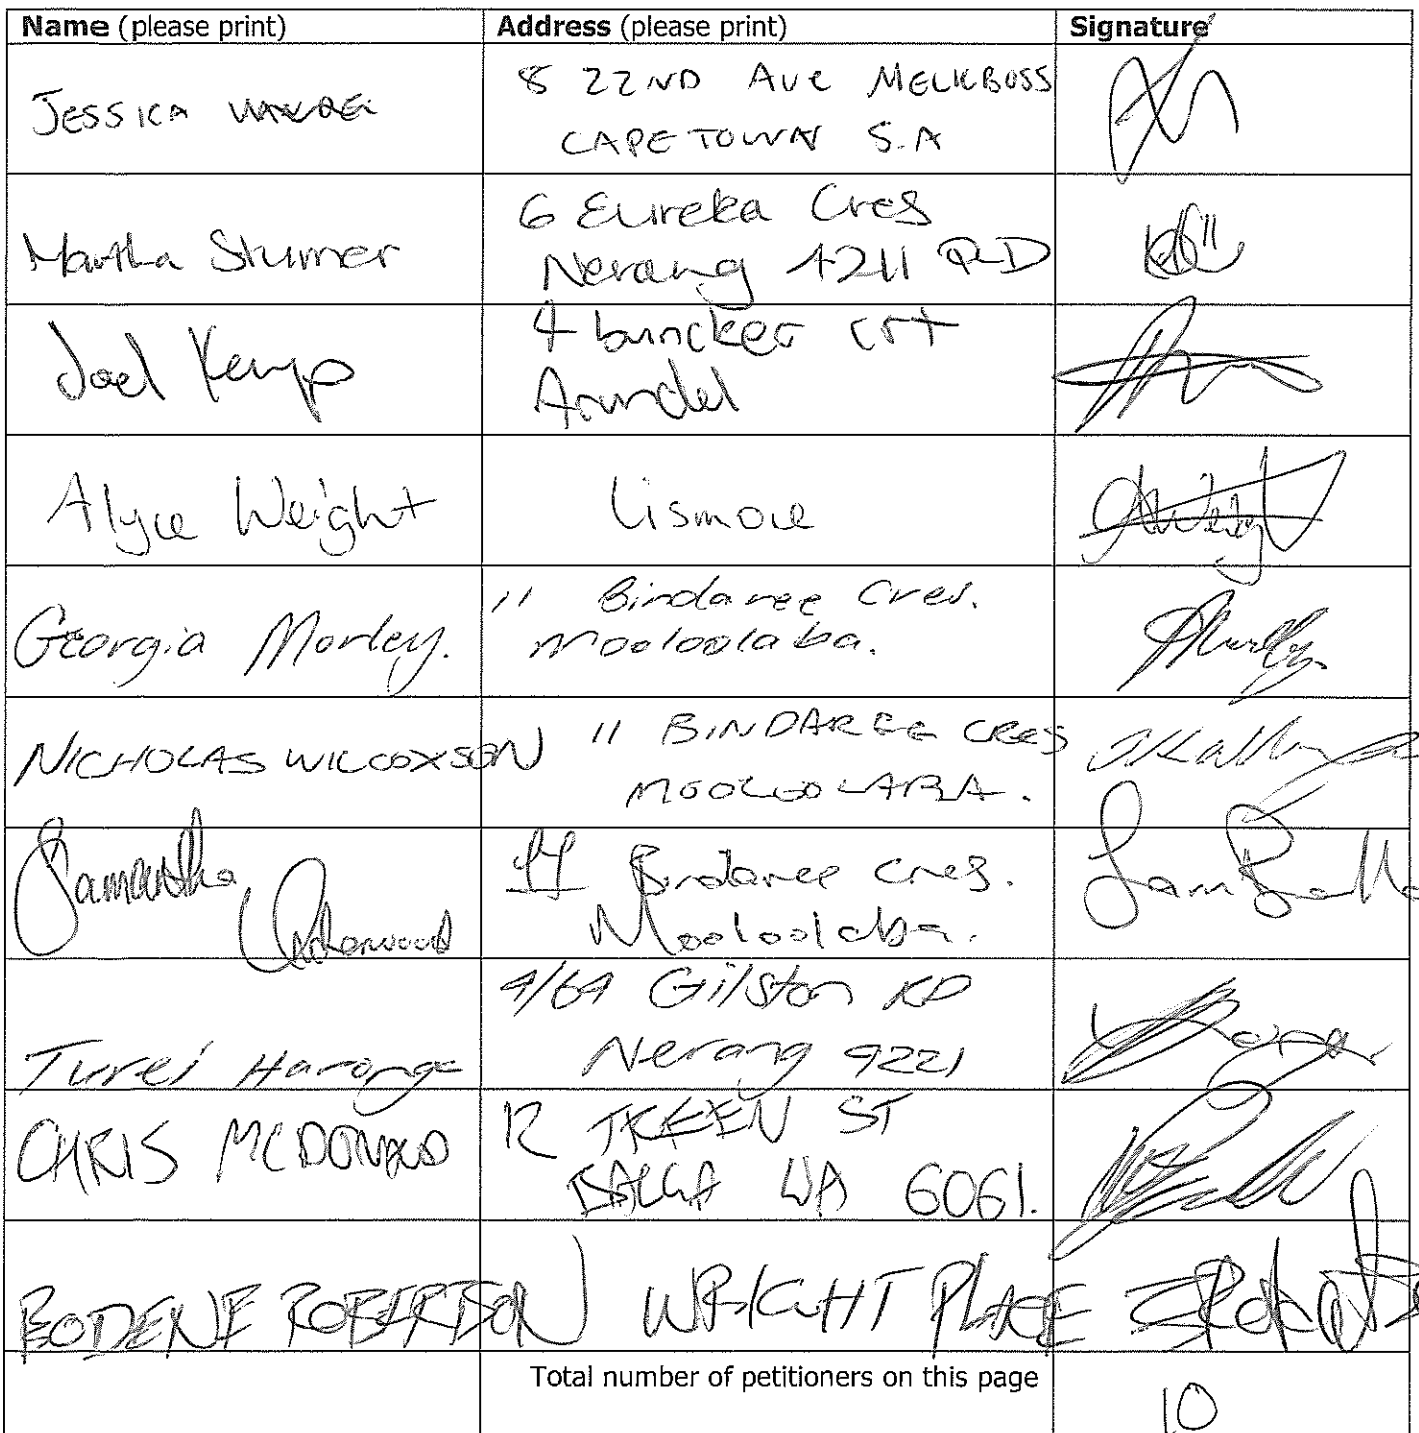 Name (please print) Address (please print) Signature
JESSICA
8 22ND Ave MELKBOSS
CAPE TOWN S.A
Martha Sturner
6 Eureka Cres
Nerang 4211 QLD
Joel Kemp
4 buncker crt
Arundel
Alyce Weight
Lismore
Georgia Morley.
11 Bindaree Cres.
Mooloolaba.
NICHOLAS WILCOXSON
11 BINDAREE CRES
MOOLOOLABA.
Samantha
Underwood
11 Bindaree Cres.
Mooloolaba.
Turei Haronga
4/64 Gilston RD
Nerang 4221
CHRIS MCDONALD
12 TREEN ST
BALGA WA 6061.
BODENE ROBERTSON
WRIGHT PLACE
Total number of petitioners on this page
10